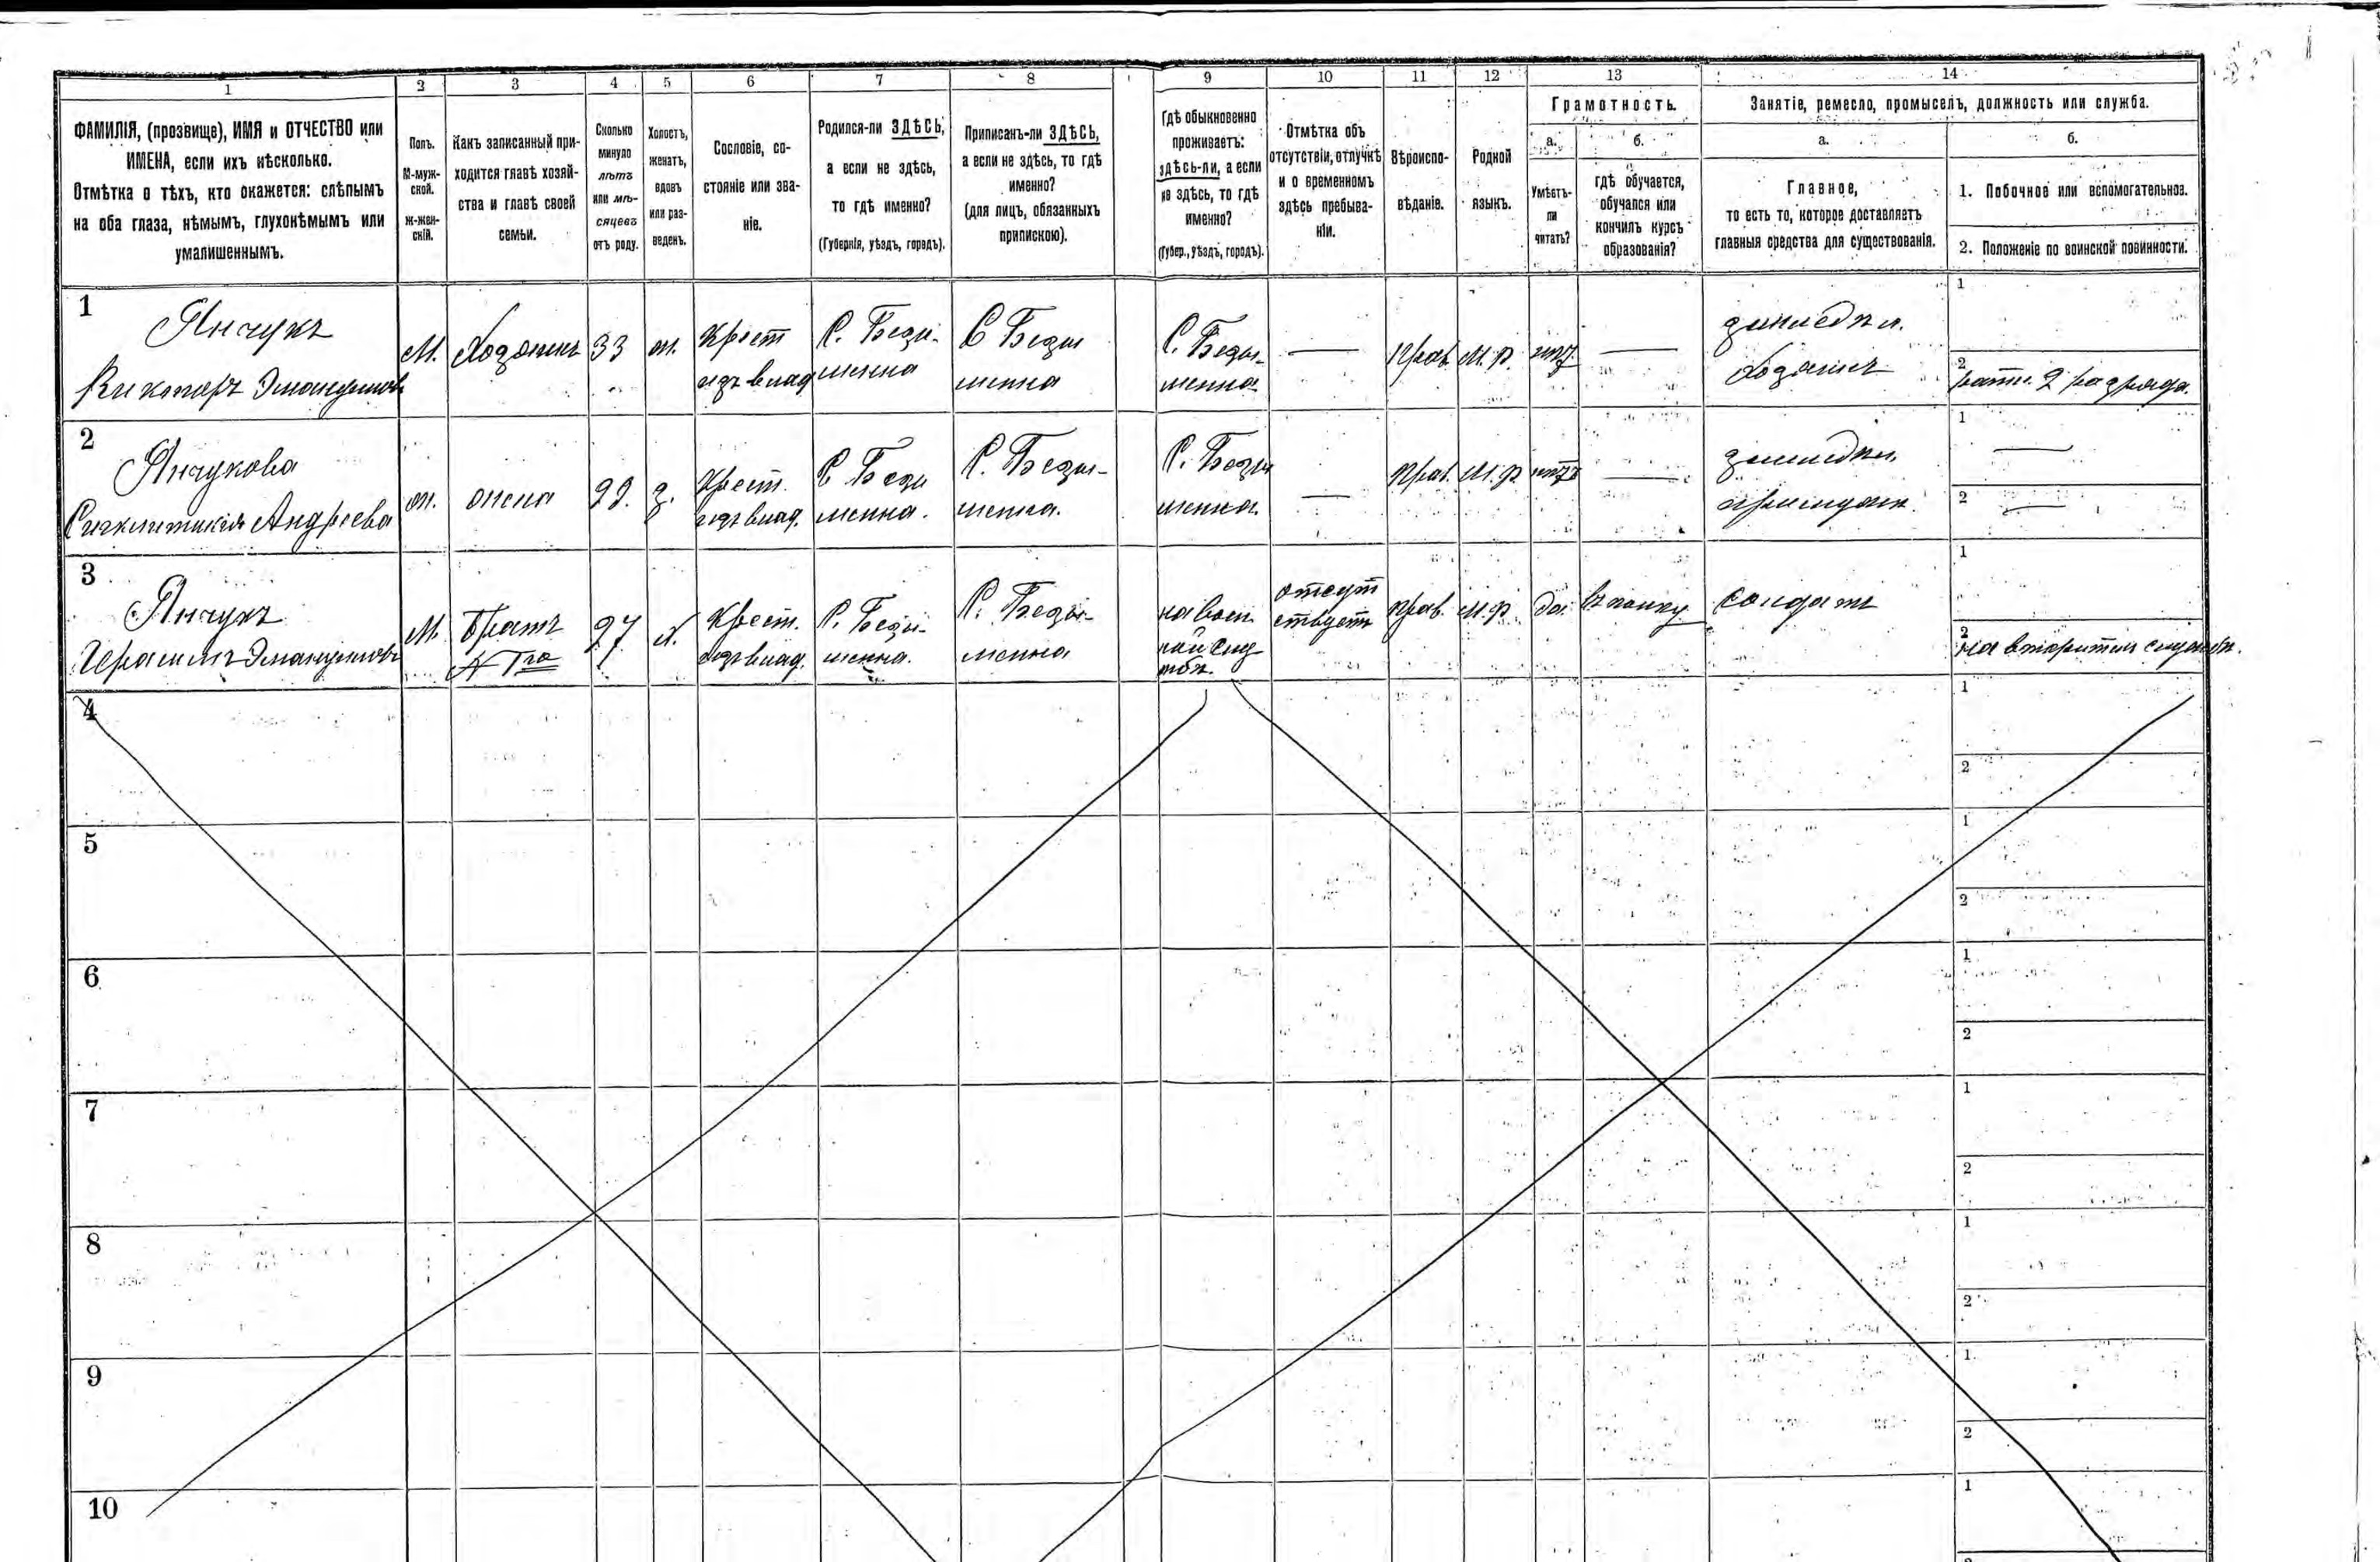 1 2 3 4 5 6 7 8 9 10 11 12 13 14
ФАМИЛІЯ, (прозвище), ИМЯ и ОТЧЕСТВО или
ИМЕНА, если ихъ нѣсколько.
Отмѣтка о тѣхъ, кто окажется: слѣпымъ
на оба глаза, нѣмымъ, глухонѣмымъ или
умалишеннымъ.
Полъ.
М-муж-
ской.
Ж-жен-
скій.
Какъ записанный при-
ходится главѣ хозяй-
ства и главѣ своей
семьи.
Сколько
минуло
лѣтъ
или мѣ-
сяцевъ
отъ роду.
Холостъ,
женатъ,
вдовъ
или раз-
веденъ.
Сословіе, со-
стояніе или зва-
ніе.
Родился-ли ЗДѢСЬ,
а если не здѣсь,
то гдѣ именно?
(Губернія, уѣздъ, городъ).
Приписанъ-ли ЗДѢСЬ,
а если не здѣсь, то гдѣ
именно?
(для лицъ, обязанныхъ
припискою).
Гдѣ обыкновенно
проживаетъ:
здѣсь-ли, а если
не здѣсь, то гдѣ
именно?
(Губер., уѣздъ, городъ).
Отмѣтка объ
отсутствіи, отлучкѣ
и о временномъ
здѣсь пребыва-
ніи.
Вѣроиспо-
вѣданіе.
Родной
языкъ.
Грамотность.
а.
Умѣетъ-
ли
читать?
б.
гдѣ обучается,
обучался или
кончилъ курсъ
образованія?
Занятіе, ремесло, промыселъ, должность или служба.
а.
Главное,
то есть то, которое доставляетъ
главныя средства для существованія.
б.
1. Побочное или вспомогательное.
2. Положеніе по воинской повинности.
1
Янчукъ
Викторъ Эмануиловъ
М.
Хозяинъ
33
ж.
Крест
изъ влад
С. Безы-
менна
С Безы
менна
С. Безы-
менна
—
Прав.
М. р.
нтъ
—
земледѣл.
хозяинъ
1
2
ратн. 2 разряда.
2
Янчукова
Андреева
ж.
жена
22.
з.
Крест.
изъ влад.
С Безы
менна.
С. Безы-
менна.
С. Безы
менна.
—
Прав.
М. р
нтъ
—
земледѣл.
1 —
2 —
3
Янчукъ
Герасимъ Эмануиловъ
М.
Братъ
к 1го
27
х.
Крест.
изъ влад.
С. Безы-
менна.
С. Безы-
менна
на воен
ной слу
жбѣ.
отсут
ствуетъ
Прав.
М. р.
да.
въ полку
солдатъ
1
2
4
1
2
5
1
2
6
1
2
7
1
2
8
1
2
9
1
2
10
1